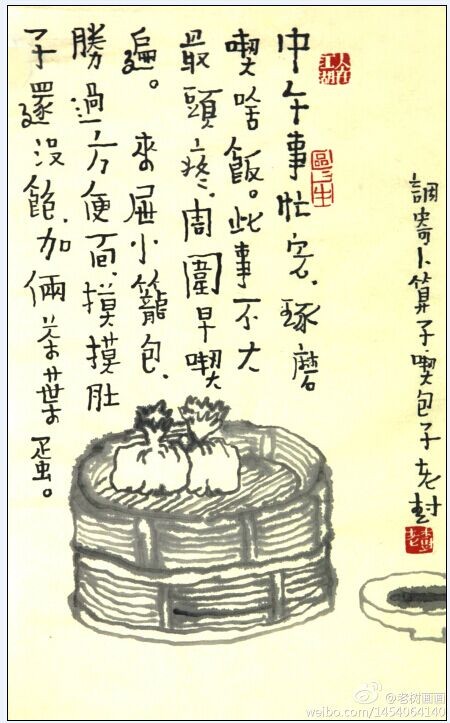 調寄卜算子、喫包子 老树
中午事忙完、琢磨
喫啥飯。此事不大
最頭疼、周圍早喫
遍。來屉小籠包、
勝過方便面、摸摸肚
子還沒飽、加倆茶葉蛋。
人在江湖
老树
@老树画画
weibo.com/1454964140